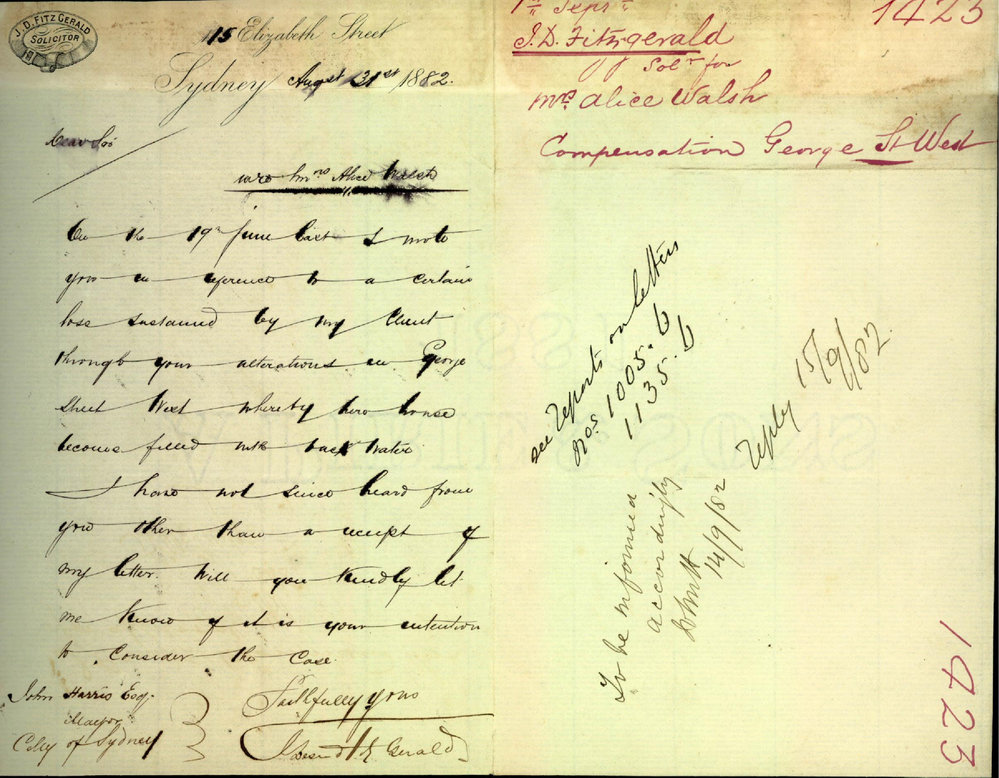 J. D. FITZ GERALD
SOLICITOR
115 Elizabeth Street
Sydney August 31st 1882.
Dear Sir
Mrs Alice Walsh
On the 19th June last I wrote
you in reference to a certain
loss sustained by my Client
through your alterations in George
Street West whereby her house
become filled with back water
I have not since heard from
you other than a receipt of
my letter. Will you kindly let
me know if it is your intention
to Consider the Case.
Faithfully yours
Gerald
John Harris Esq.
Mayor
City of Sydney
1st Sepr
1423
J. D. Fitzgerald
Solr for
Mrs. Alice Walsh
Compensation George St West
see reports on letters
Nos 1005. 6
1135. 6
To be informed
accordingly
14/9/82
reply 15/9/82.
1423